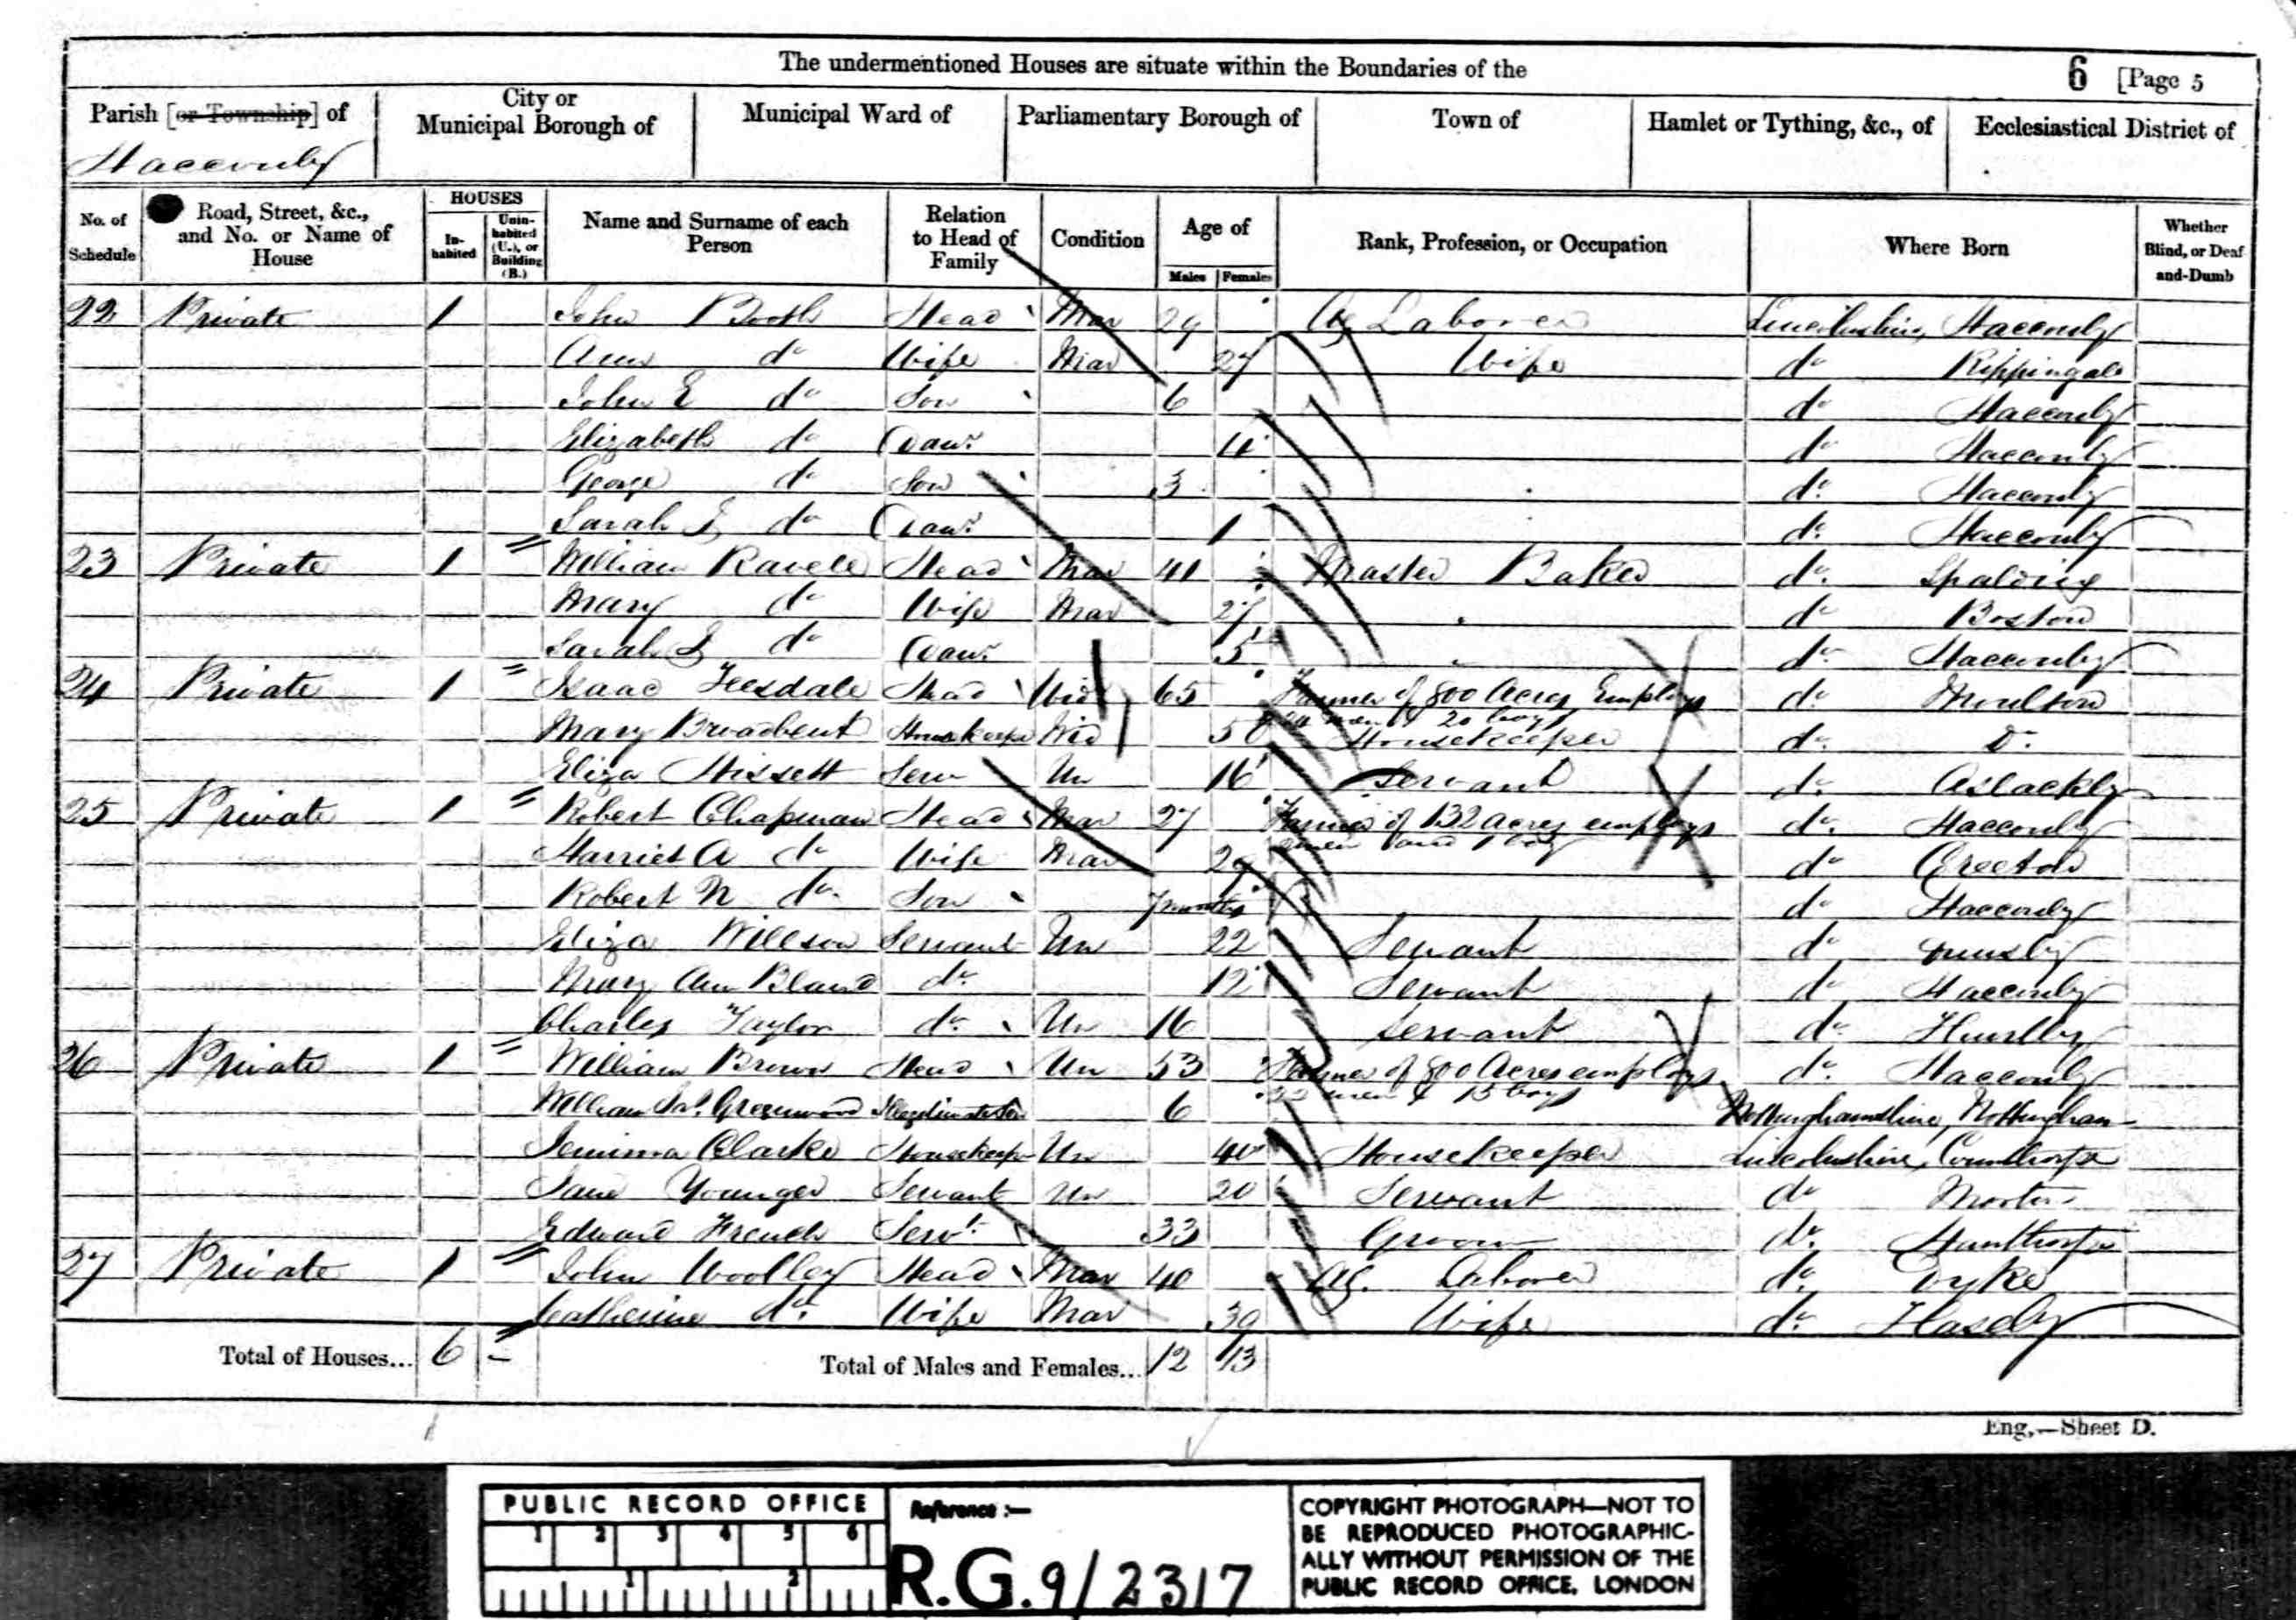 The undermentioned Houses are situate within the Boundaries of the
6 [Page 5
Parish [or Township] of
City or Municipal Borough of
Municipal Ward of
Parliamentary Borough of
Town of
Hamlet or Tything, &c., of
Ecclesiastical District of
Hacconby
No. of Schedule
Road, Street, &c., and No. or Name of House
HOUSES
In-habited
Unin-habited (U.), or Building (B.)
Name and Surname of each Person
Relation to Head of Family
Condition
Age of
Males Females
Rank, Profession, or Occupation
Where Born
Whether Blind, or Deaf-and-Dumb
22 Private 1 John Booth Head Mar 29 Ag Laborer Lincolnshire, Hacconby
Ann do Wife Mar 27 Wife do Rippingale
John E do Son 6 do Hacconby
Elizabeth do Daur 4 do Hacconby
George do Son 3 do Hacconby
Sarah do Daur 1 do Hacconby
23 Private 1 William Head Mar 41 Master Baker do Spalding
Mary do Wife Mar 27 do Boston
Sarah do Daur 5 do Hacconby
24 Private 1 Isaac Teesdale Head Wid 65 Farmer of 800 Acres Employs do Moulton
men & 20 boys
Mary Broadbent Housekeeper Wid 50 Housekeeper do Do
Eliza Hissett Serv Un 16 Servant do Aslackby
25 Private 1 Robert Chapman Head Mar 27 Farmer of 132 acres employs do Hacconby
men and 1 boy
Harriet A do Wife Mar 29 do Creeton
Robert N do Son 7 months do Hacconby
Eliza Willson Servant Un 22 Servant do
Mary Ann Bland do 12 Servant do Hacconby
Charles Taylor do Un 16 Servant do
26 Private 1 William Brown Head Un 53 Farmer of 800 Acres employs do Hacconby
men & 15 boys
William Greenwood Illegitimate Son 6 Nottinghamshire, Nottingham
Jemima Clarke Housekeeper Un 40 Housekeeper Lincolnshire, Counthorpe
Jane Younger Servant Un 20 Servant do Morton
Edward French Servt 33 Groom do
27 Private 1 John Woolley Head Mar 40 Ag. Laborer do Dyke
Catherine do Wife Mar 39 Wife do
Total of Houses... 6 –
Total of Males and Females... 12 13
Eng.—Sheet D.
PUBLIC RECORD OFFICE
1 2 3 4 5 6
1 2
Reference :—
R.G. 9/2317
COPYRIGHT PHOTOGRAPH—NOT TO
BE REPRODUCED PHOTOGRAPHIC-
ALLY WITHOUT PERMISSION OF THE
PUBLIC RECORD OFFICE, LONDON